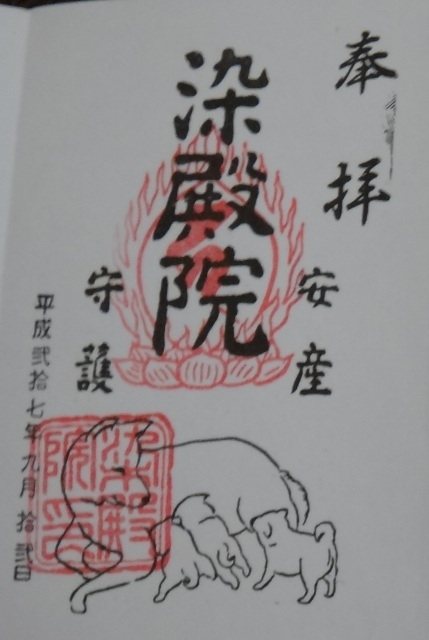 奉拝
安産
染殿院
守護
平成弐拾七年九月拾弐日
染殿院印